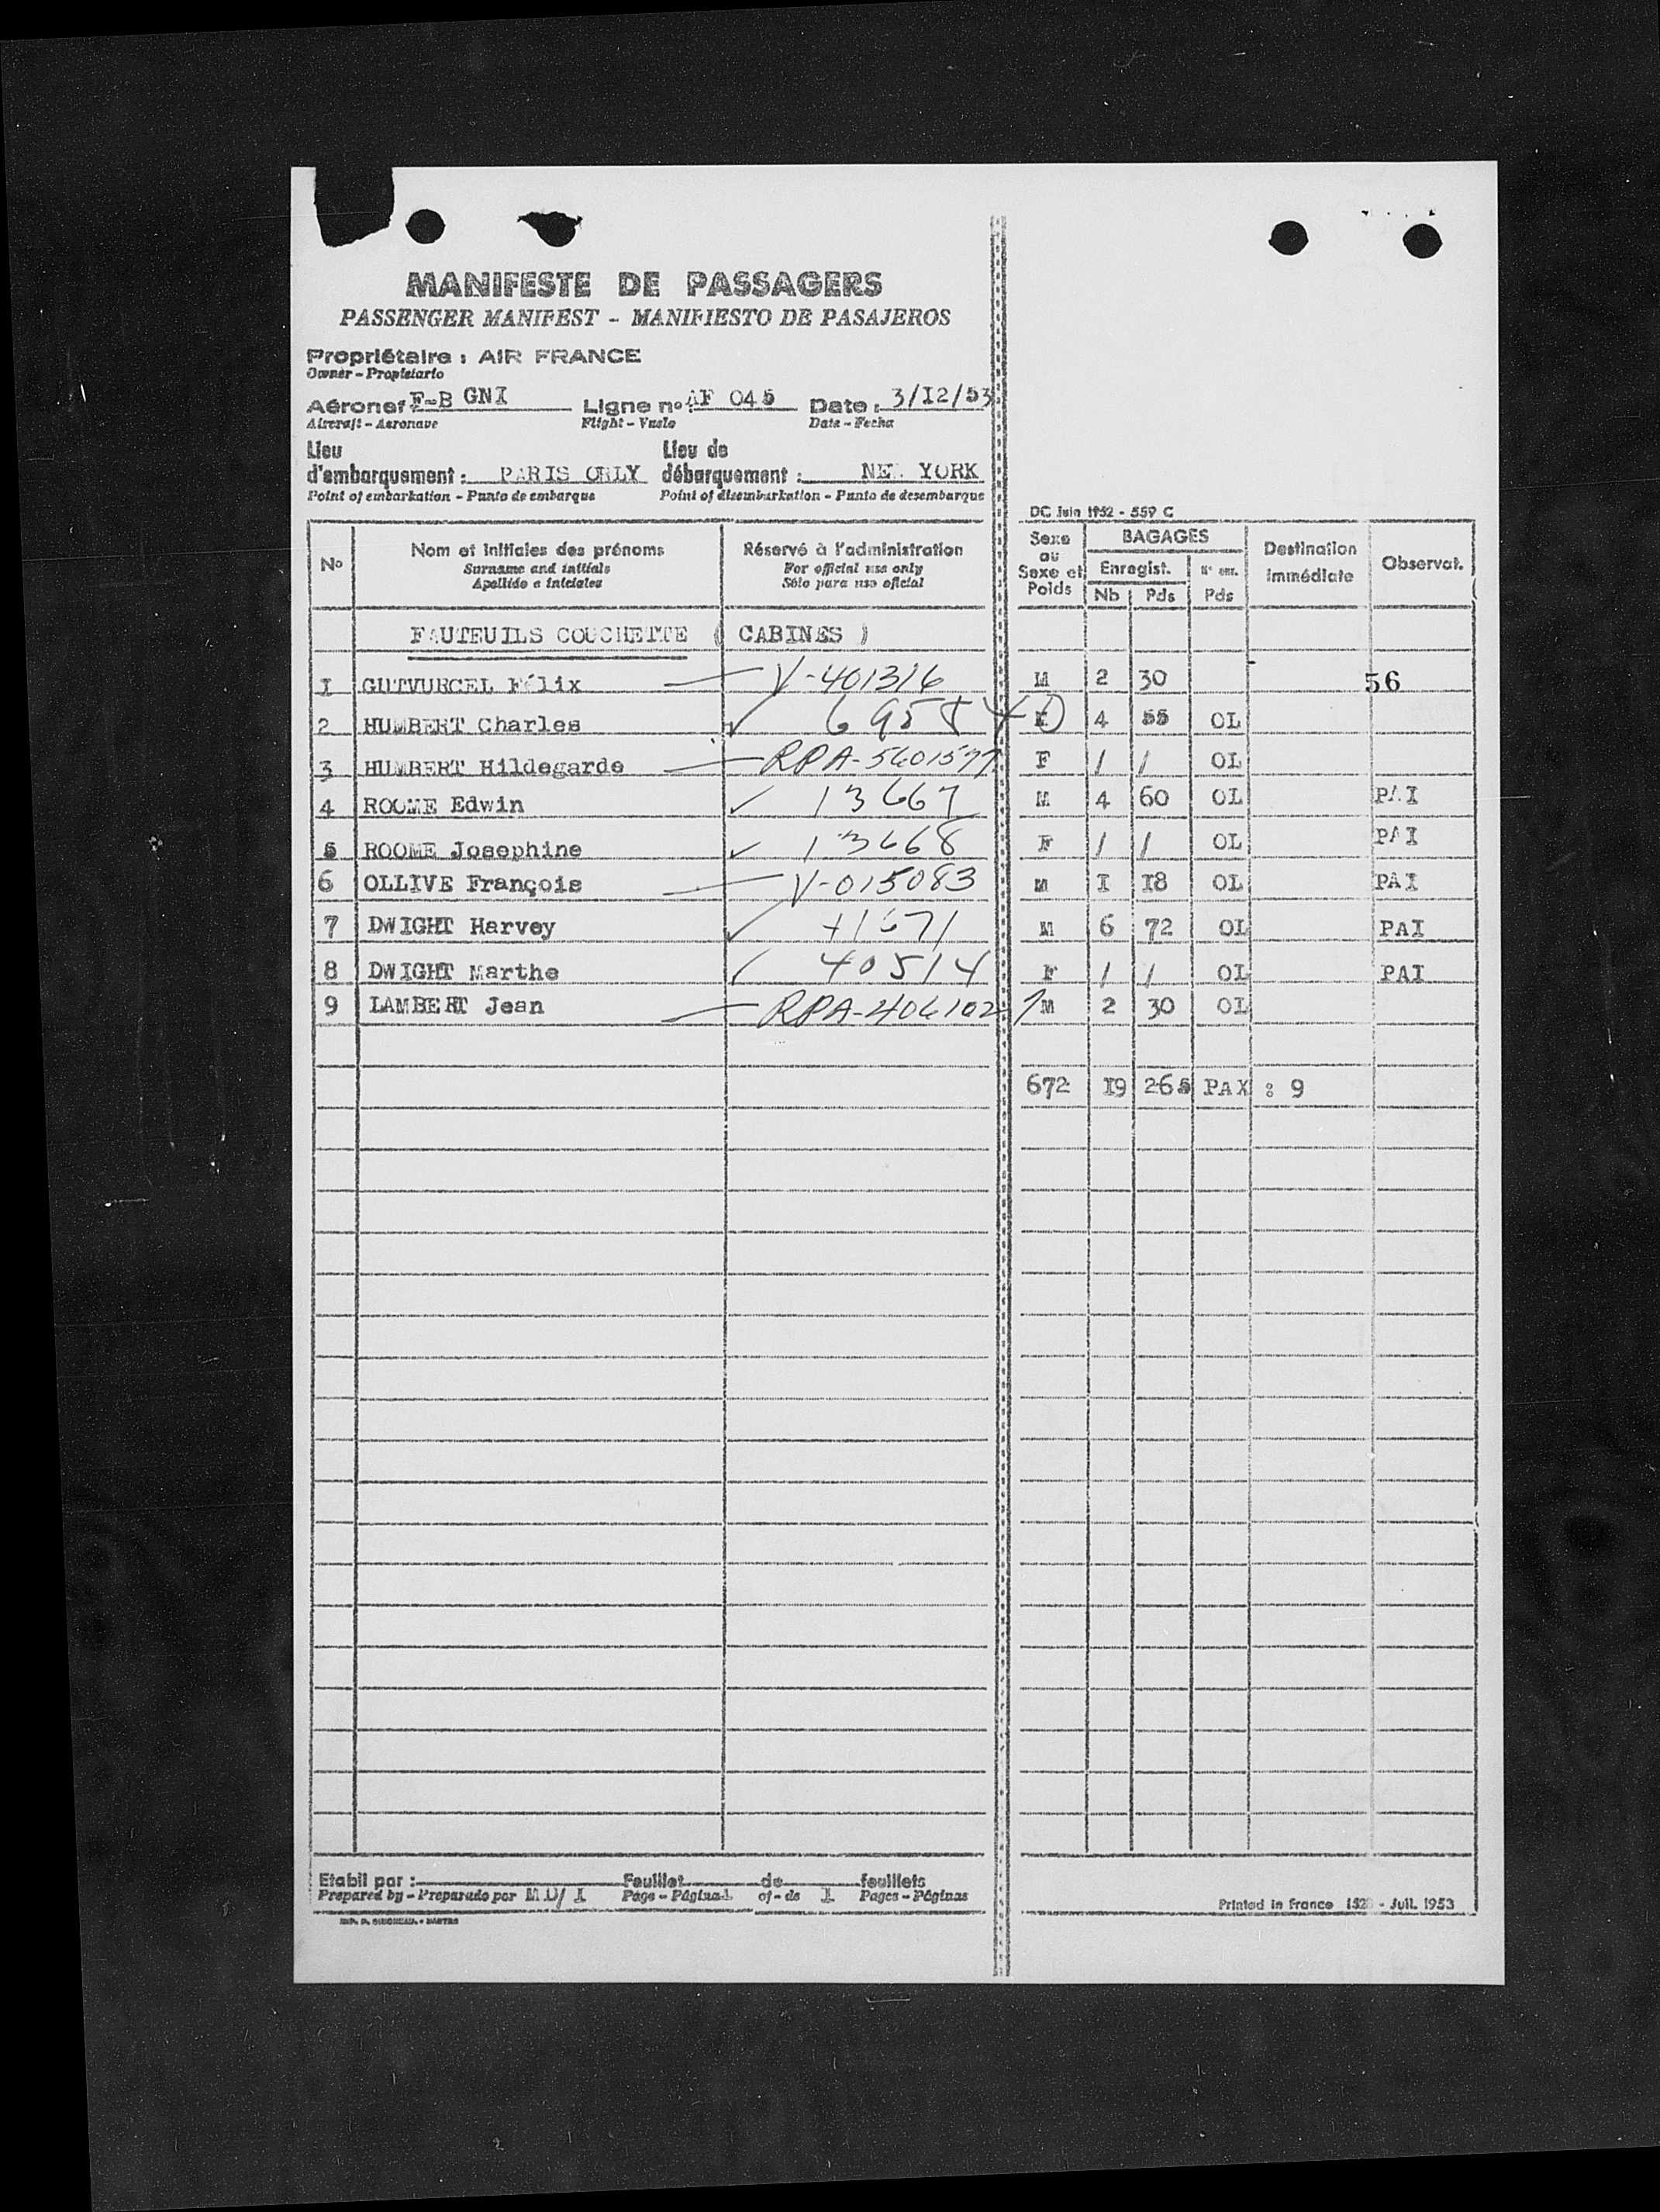 MANIFESTE DE PASSAGERS
PASSENGER MANIFEST - MANIFIESTO DE PASAJEROS
Propriétaire : AIR FRANCE
Owner - Propietario
Aéronef F-B GNI Ligne no AF 045 Date : 3/I2/53
Aircraft - Aeronave Flight - Vuelo Date - Fecha
Lieu d'embarquement : PARIS ORLY Lieu de débarquement : NEW YORK
Point of embarkation - Punto de embarque Point of disembarkation - Punto de desembarque
DC Juin 1952 - 559 C
No Nom et initiales des prénoms Réservé à l'administration Sexe ou Sexe et Poids BAGAGES Destination immédiate Observat.
Surname and initials For official use only Enregist.
Apellido e iniciales Sólo para uso oficial Nb Pds Pds
FAUTEUILS COUCHETTE ( CABINES )
I GUTVURCEL Félix V-401316 M 2 30 56
2 HUMBERT Charles 4 55 OL
3 HUMBERT Hildegarde F / / OL
4 ROOME Edwin 13667 M 4 60 OL PAI
5 ROOME Josephine 13668 F / / OL PAI
6 OLLIVE François V-015083 M I I8 OL PAI
7 DWIGHT Harvey M 6 72 OL PAI
8 DWIGHT Marthe 40514 F / / OL PAI
9 LAMBERT Jean RPA-4061021 M 2 30 OL
672 I9 265 PAX : 9
Etabli par : Feuillet de feuillets
Prepared by - Preparado por MD/ I Page - Página I of - de I Pages - Páginas
Printed in France - Juil. 1953